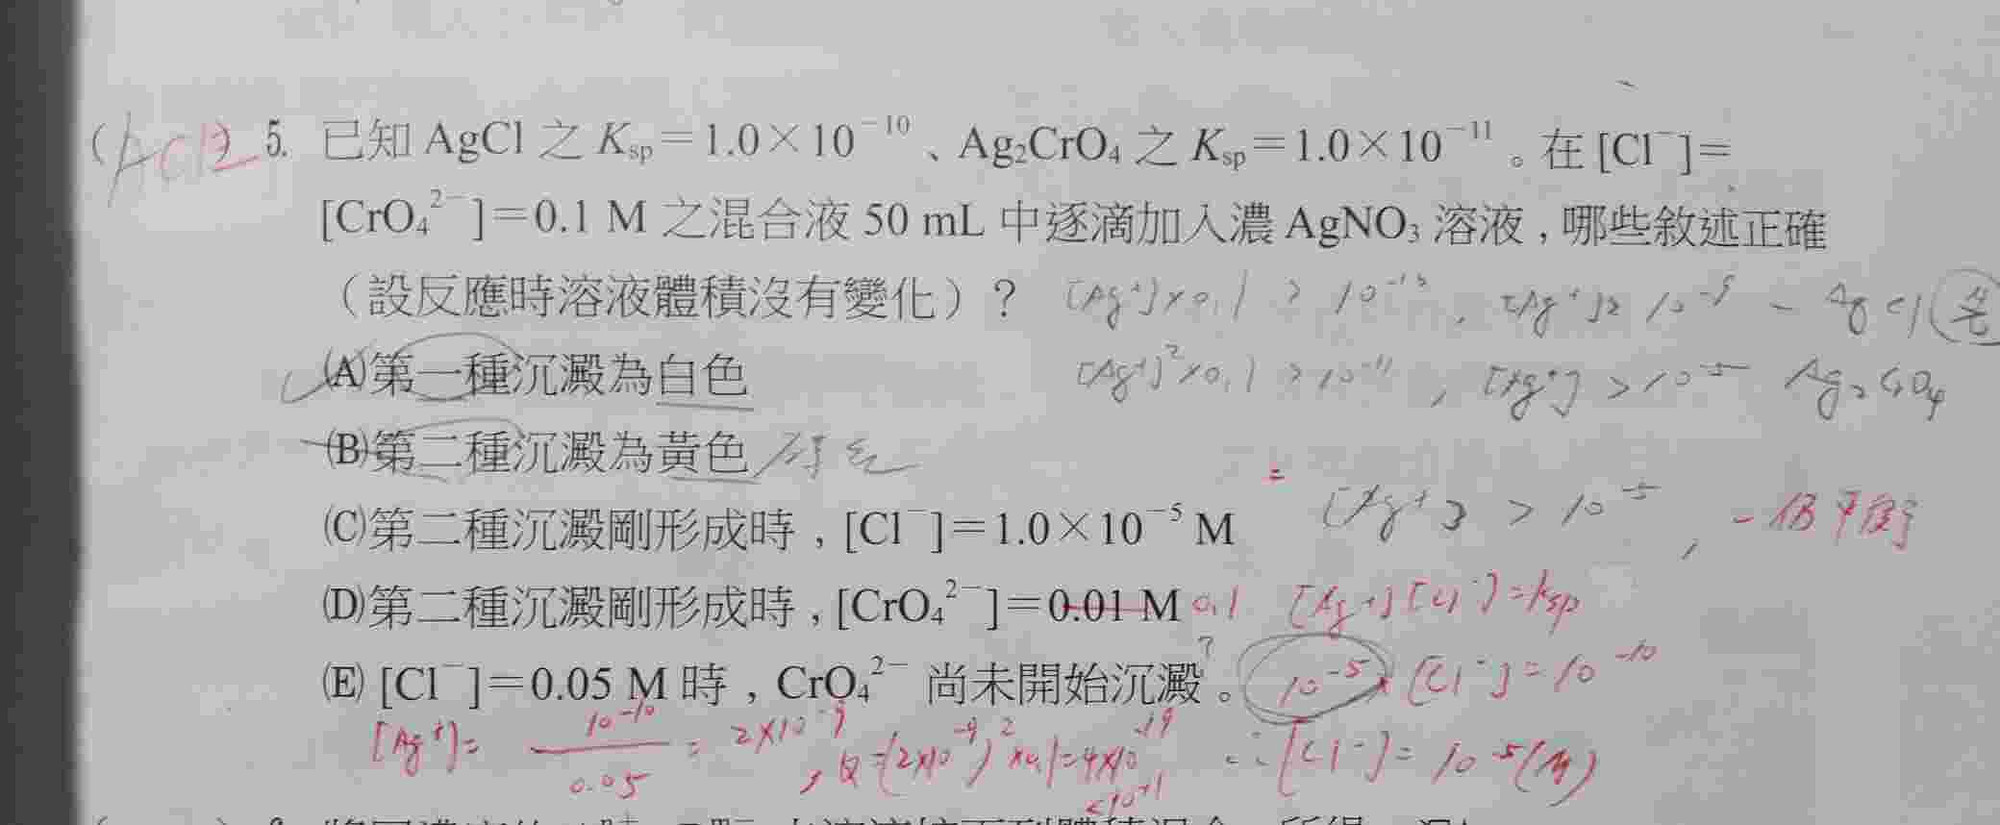 (ACE) 5. 已知 AgCl 之 Ksp=1.0×10⁻¹⁰、Ag₂CrO₄ 之 Ksp=1.0×10⁻¹¹。在 [Cl⁻]=
[CrO₄²⁻]=0.1 M 之混合液 50 mL 中逐滴加入濃 AgNO₃ 溶液,哪些敘述正確
(設反應時溶液體積沒有變化)? [Ag⁺]×0.1 > 10⁻¹⁰, [Ag⁺]> 10⁻⁹ - AgCl 先
(A)第一種沉澱為白色 [Ag⁺]²×0.1 > 10⁻¹¹, [Ag⁺] > 10⁻⁵ Ag₂CrO₄
(B)第二種沉澱為黃色 磚紅
(C)第二種沉澱剛形成時,[Cl⁻]=1.0×10⁻⁵ M = [Ag⁺] > 10⁻⁵, -仍平衡
(D)第二種沉澱剛形成時,[CrO₄²⁻]=0.01 M 0.1 [Ag⁺][Cl⁻]=ksp
(E) [Cl⁻]=0.05 M 時,CrO₄²⁻ 尚未開始沉澱?。 10⁻⁵×[Cl⁻]=10⁻¹⁰
[Ag⁺]= 10⁻¹⁰/0.05 = 2×10⁻⁹, Q=(2×10⁻⁹)²×0.1=4×10⁻¹⁹ <10⁻¹¹ ∴[Cl⁻]= 10⁻⁵(M)